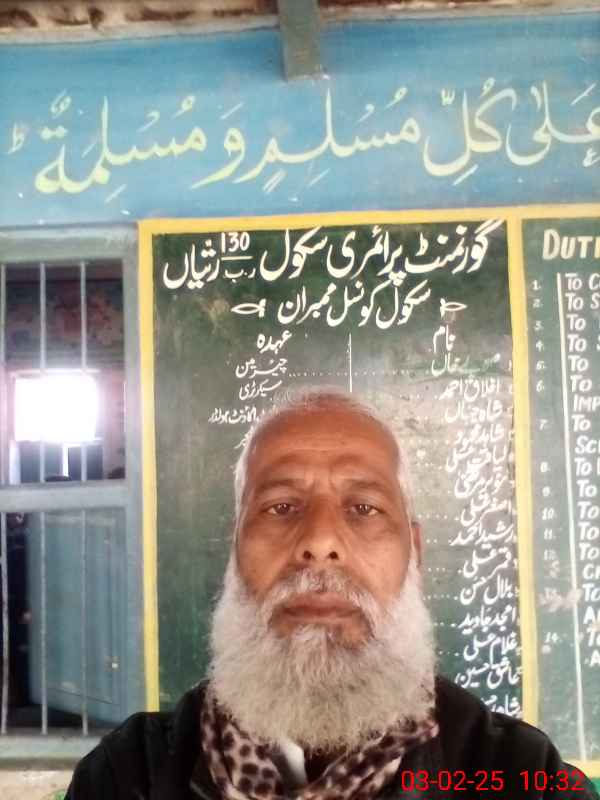 عَلٰی كُلِّ مُسْلِمٍ وَّ مُسْلِمَةٌ ط
گورنمنٹ پرائمری سکول 130 ر ب رتیاں
سکول کونسل ممبران
نام عہدہ
چیئرمین
اخلاق احمد سیکرٹری
شاہ جہاں اکاؤنٹ ہولڈر
شاہد محمود
لیاقت علی
اصغر علی
رشید احمد
قمر علی
بلال حسن
امجد جاوید
غلام علی
عاشق حسین
DUTI
1. TO C
2. TO S
3. TO
4. TO S
5. TO
6. TO
IMP
7. TO
SC
8. TO
9. TO
10. TO
11. TO
12. TO
TO
A
14. TO
A
03-02-25 10:32